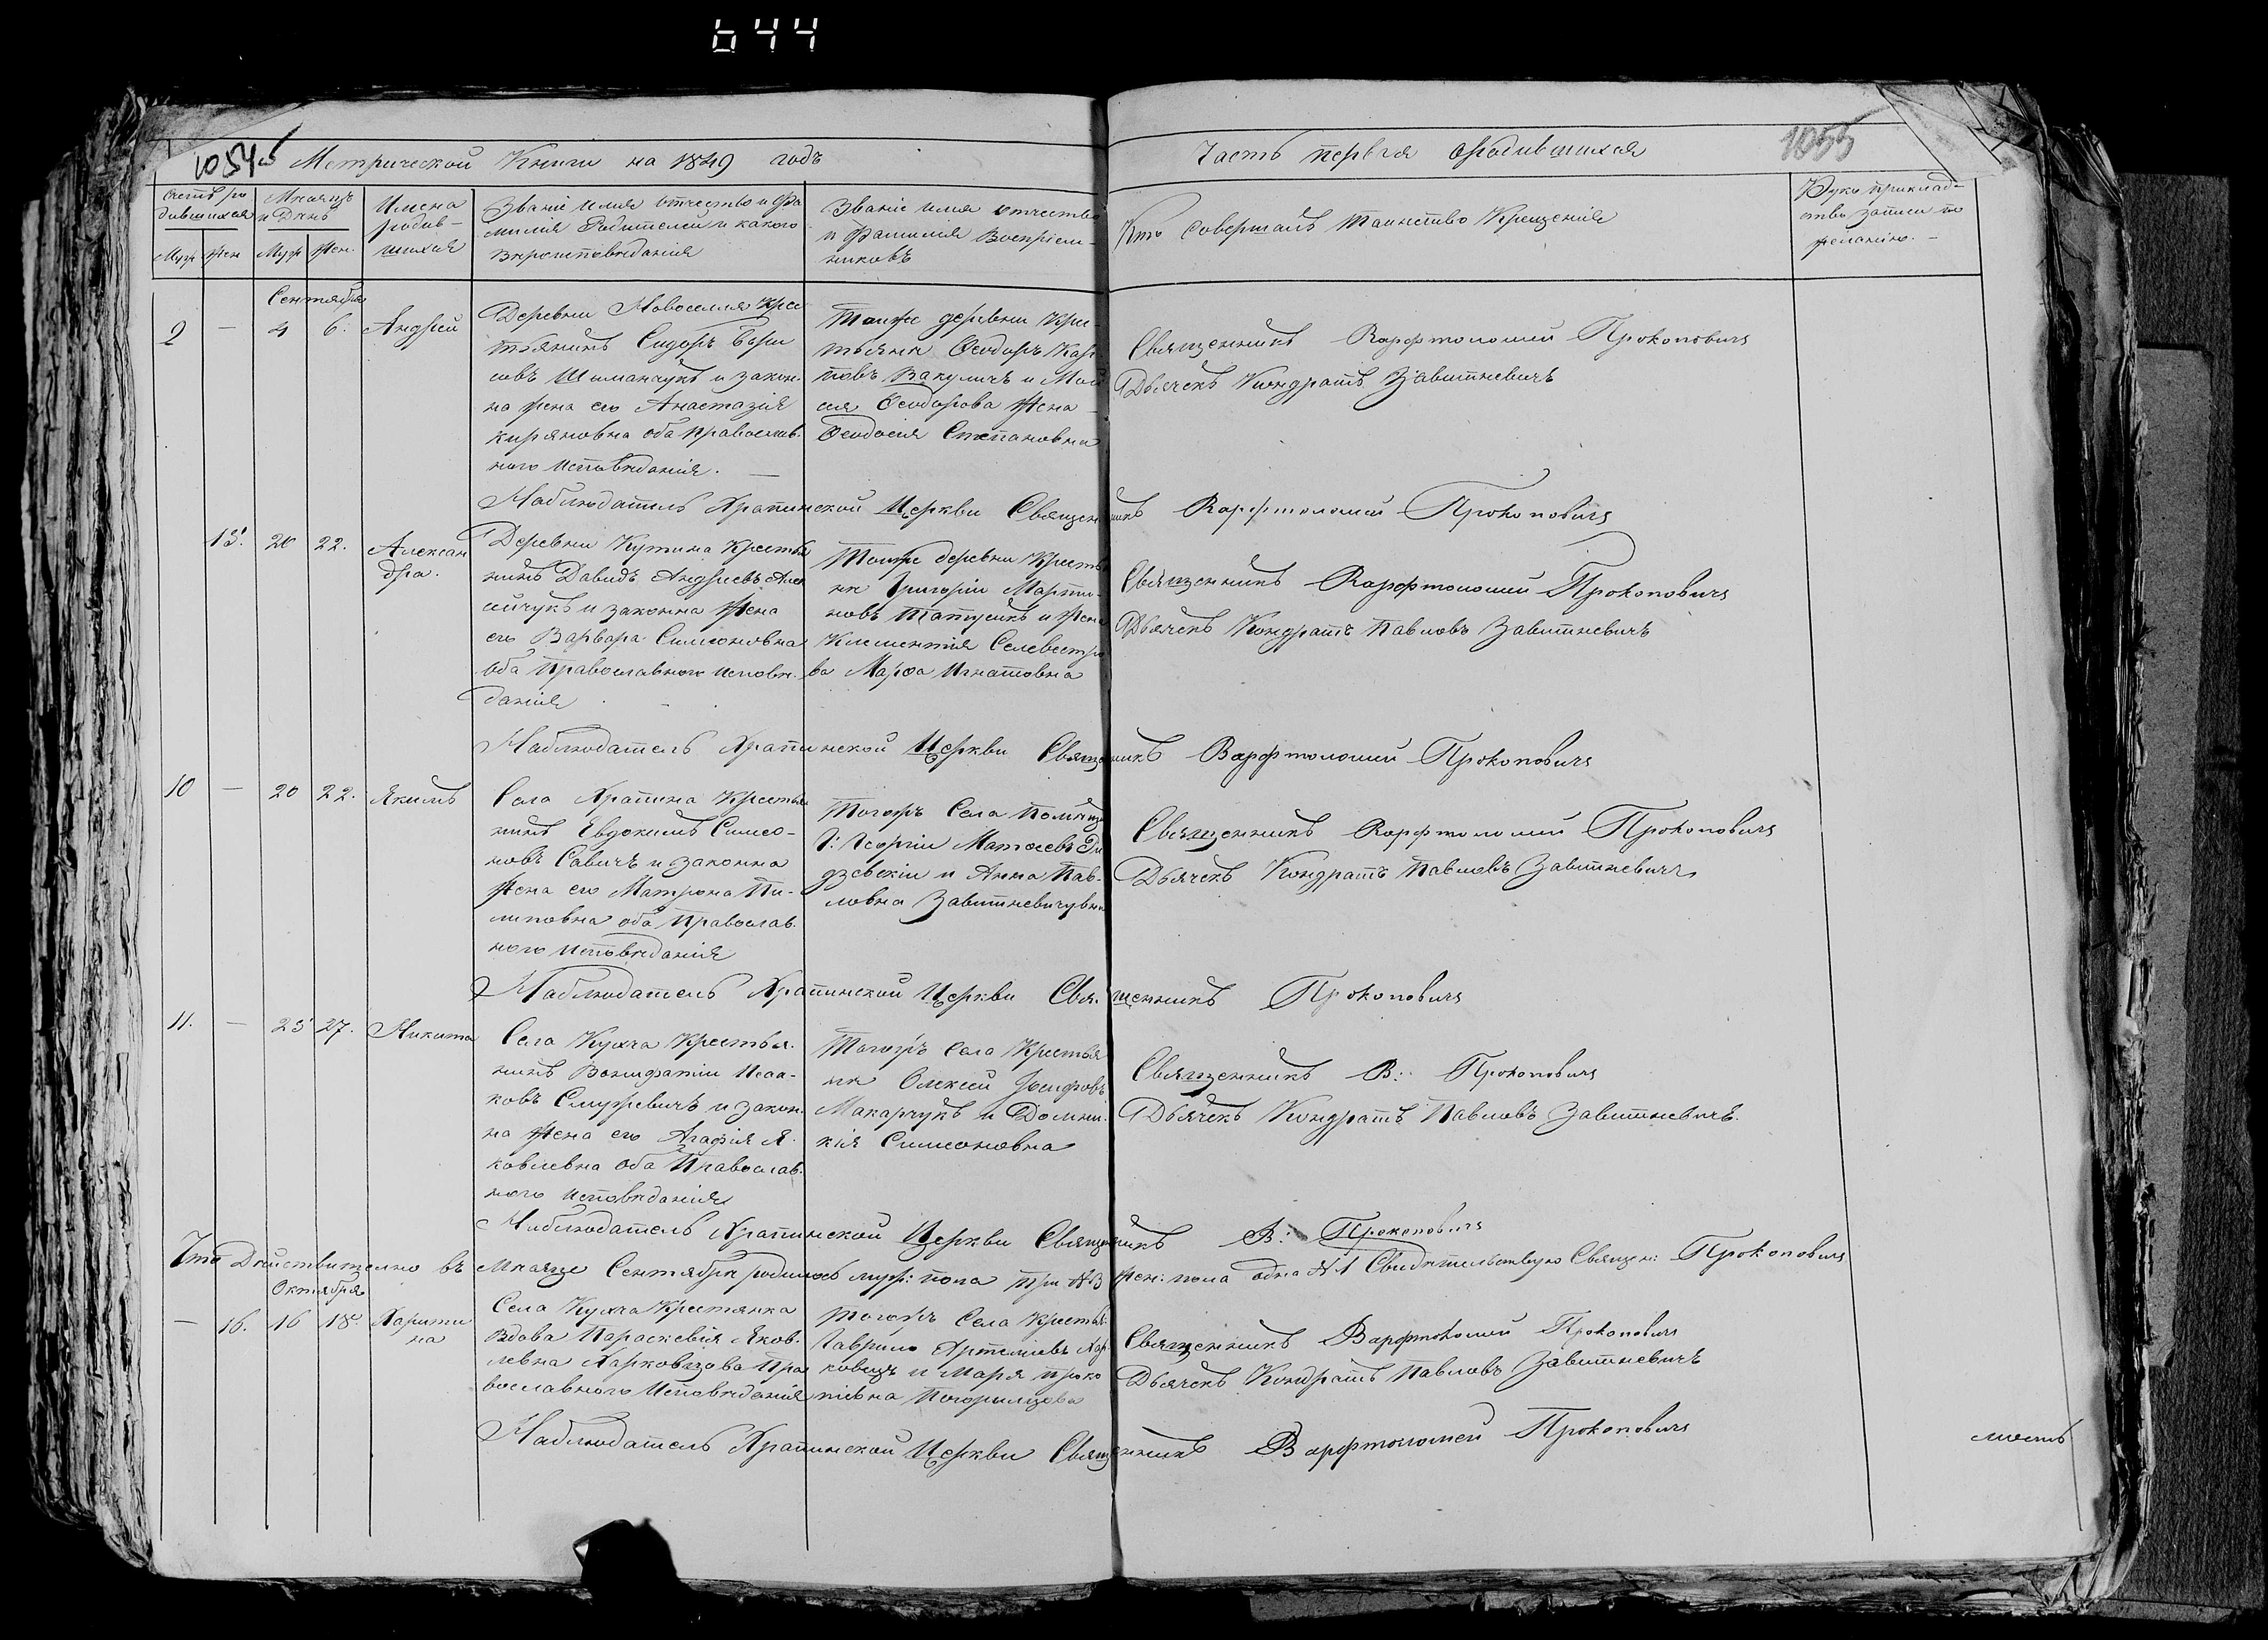 644
1054
Метрической Книги на 1849 годъ
Часть первая о родившихся
1055
Счетъ ро
дившихся
Муж Жен
Мѣсяцъ
и День
Муж Жен.
Имена
родив-
шихся
Званіе имя отчество и фа
милія Родителей и какого
вѣроисповѣданія
Званіе имя отчество
и фамилія Воспріем-
никовъ
Кто совершалъ таинство Крещенія
Рукоприклад-
ство записи по
желанію. -
Сентября
9 — 4 6. Андрей
Деревни Новоселля Крес
тьянинъ Сидоръ
Шиманчукъ и закон-
на жена его Анастазія
Киряновна оба православ.
ного исповѣданія. —
Тойже деревни Крес-
тьяни Ѳеодоръ Кар
повъ Вакуличъ и Мои
сея Ѳеодорова жена
Ѳеодосія Степановна
Священникъ Варфтоломей Прокоповичъ
Дьячекъ Кондратъ Завитневичъ
Наблюдатель Храпинской Церкви Священникъ Варфтоломей Прокоповичъ
15. 20 22. Алексан
дра.
Деревни Кутина Крестья
нинъ Давидъ Андреевъ Алек
сійчукъ и законна жена
его Варвара Симеоновна
оба православного исповѣ-
данія
Тойже деревни Кресть
ян Григорій Марти-
новъ и жена
Климентія Селевестро
ва Марѳа Игнатовна
Священникъ Варфтоломей Прокоповичъ
Дьячекъ Кондратъ Павловъ Завитневичъ
Наблюдатель Храпинской Церкви Священникъ Варфтоломей Прокоповичъ
10 — 20 22. Якимъ
Села Храпина Крестья
нинъ Евдокимъ Симео-
новъ Савичъ и законна
жена его Матрона Пи-
липовна оба Православ.
ного исповѣданія
Тогожъ Села Помѣщи
Г: Георгій Матѳеевъ
дзевскій и Анна Пав-
ловна Завитневичувна
Священникъ Варфтоломей Прокоповичъ
Дьячекъ Кондратъ Павловъ Завитневичъ
Наблюдатель Храпинской Церкви Священникъ Прокоповичъ
11. — 25 27. Никита
Села Кухча Крестья-
нинъ Вонифатій Исаа-
ковъ Смужевичъ и закон
на жена его Агафія Я-
ковлевна оба Православ.
ного исповѣданія
Тогожъ Села Крестья
ни Олексей
Макарчукъ и Домни-
кія Симеоновна
Священникъ В: Прокоповичъ
Дьячекъ Кондратъ Павловъ Завитневичъ.
Наблюдатель Храпинской Церкви Священникъ В: Прокоповичъ
Что Дѣйствительно въ Мѣсяце Сентябрѣ родилось муж: пола три №3 жен: пола одна №1 Свидѣтельствую Священ: Прокоповичъ
Октября
— 16. 16 18. Харити
на
Села Кухча Крестянка
Вдова Параскевія Яков-
левна Харковцова Пра
вославного Исповѣданія
Тогожъ Села Крестья:
Гаврило Артеміевъ Хар
ковецъ и Марія Проко
піевна
Священникъ Варфтоломей Прокоповичъ
Дьячекъ Кондратъ Павловъ Завитневичъ
Наблюдатель Храпинской Церкви Священникъ Варфтоломей Прокоповичъ